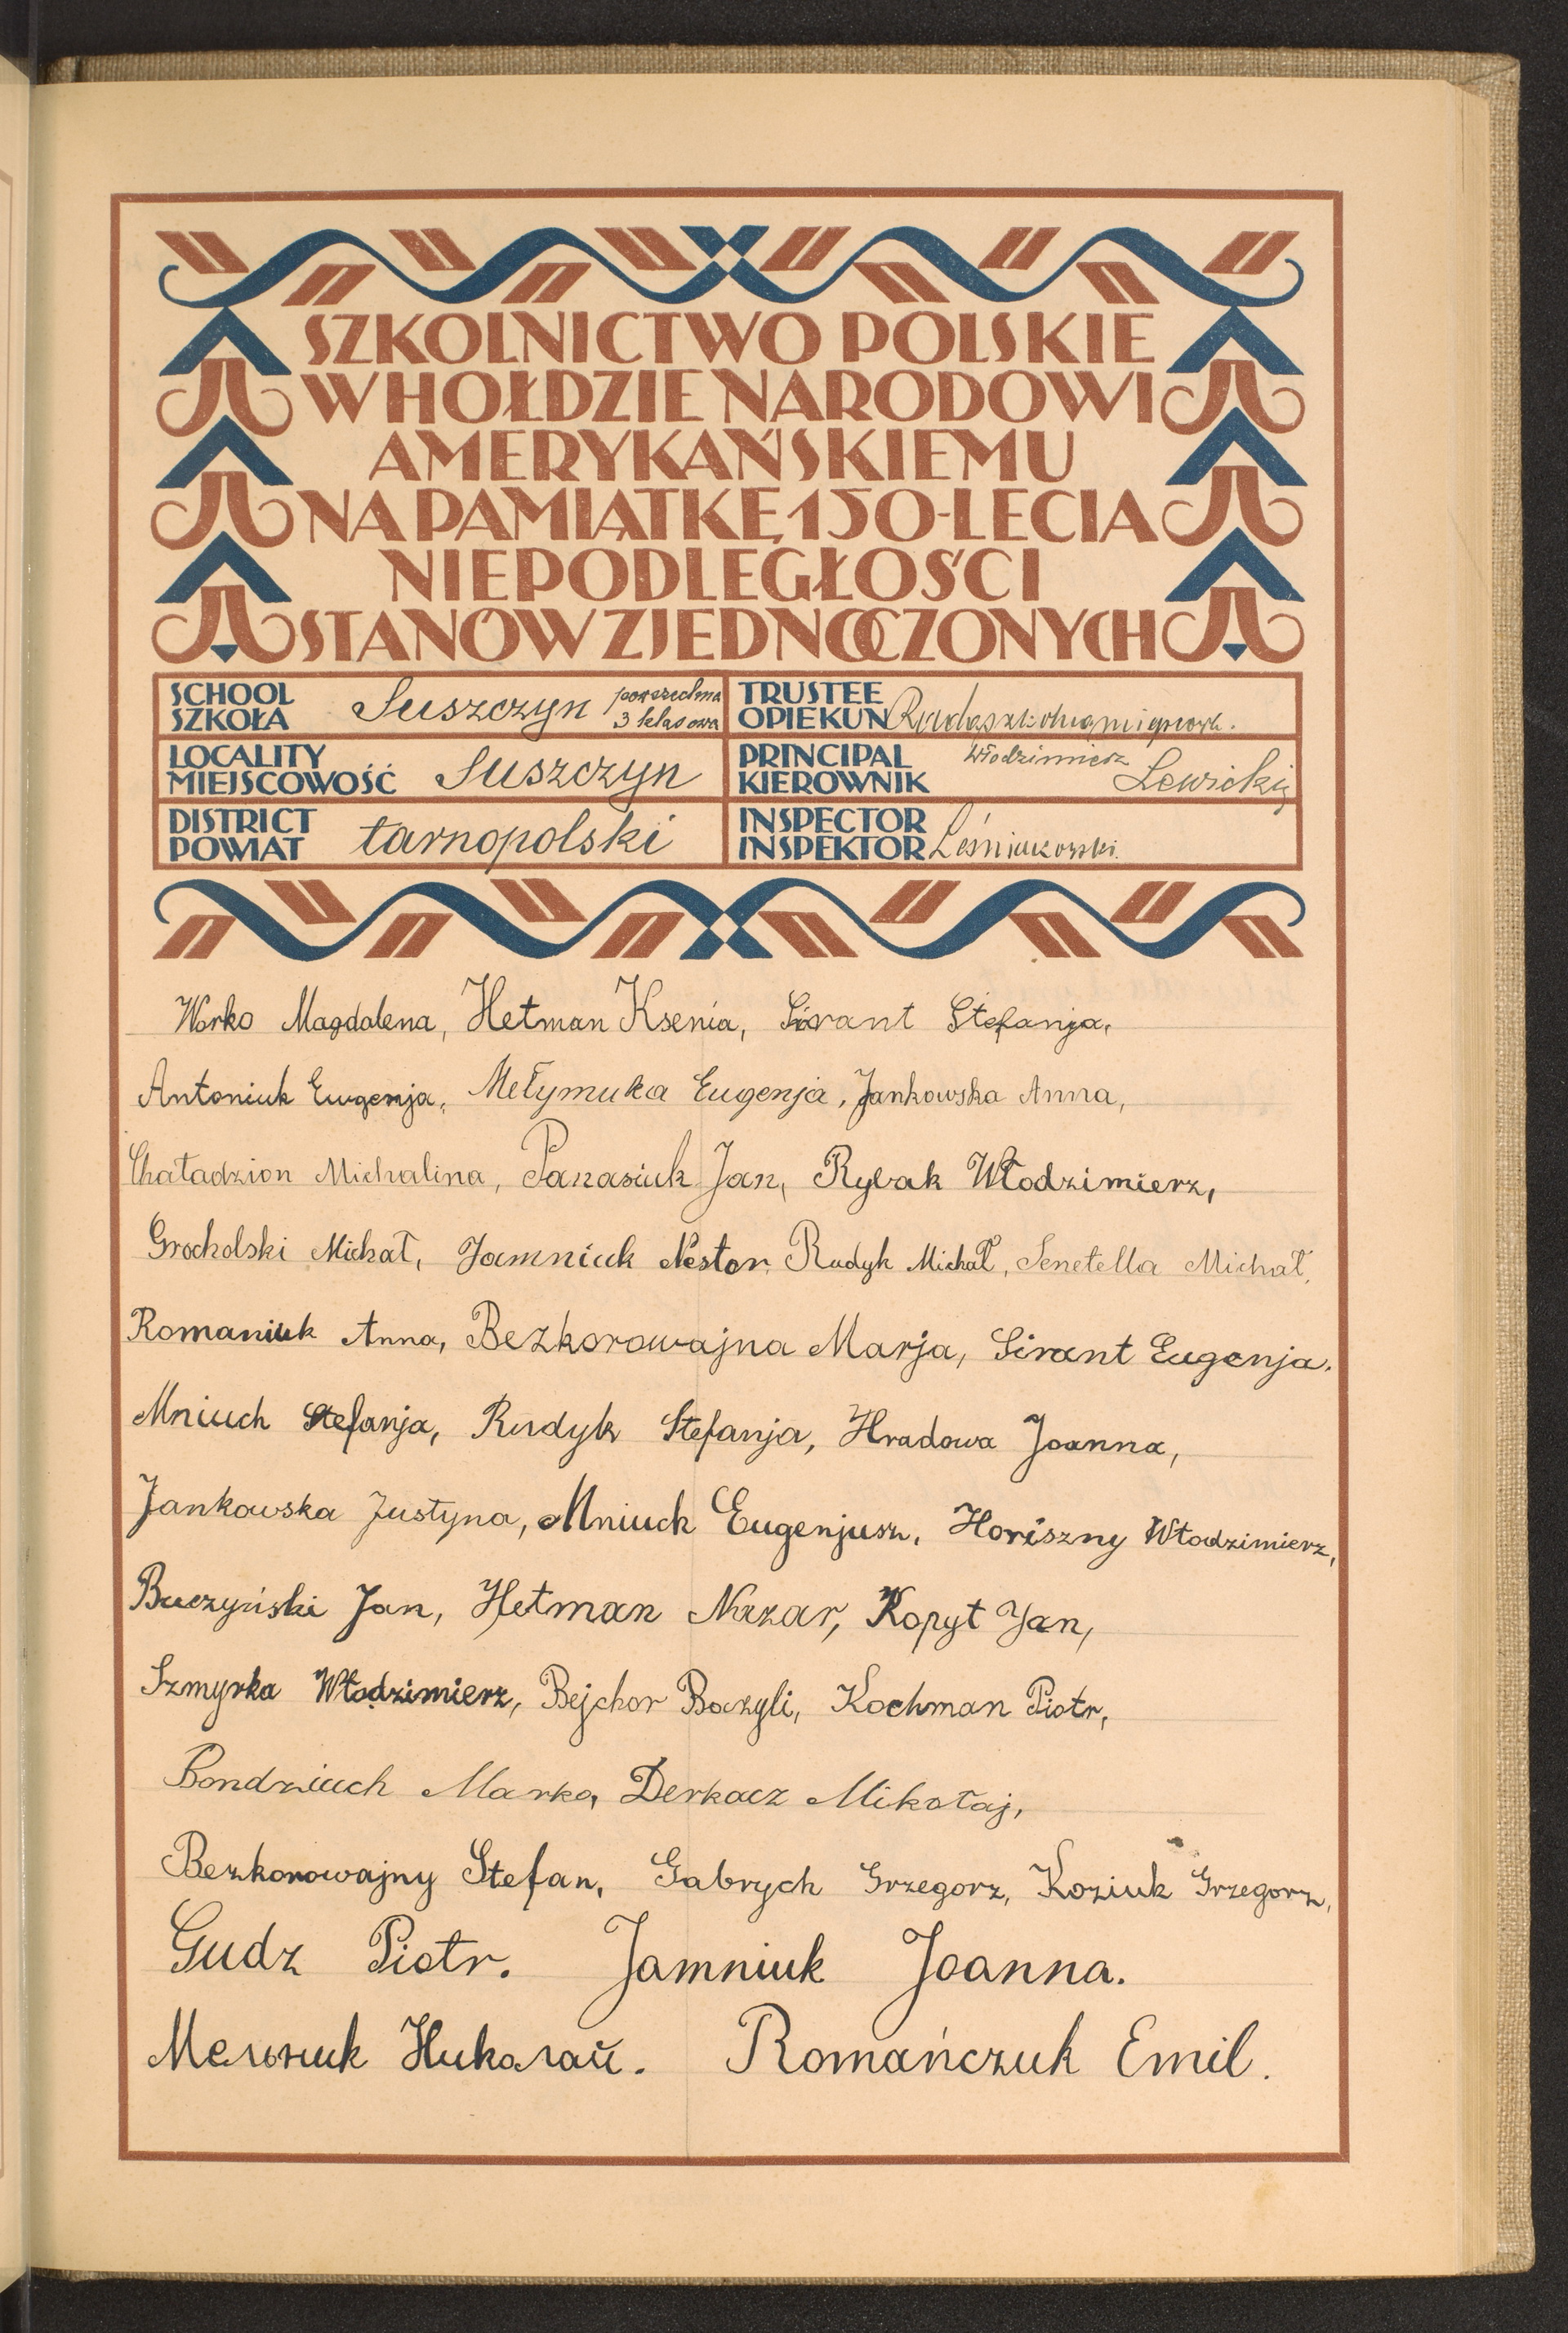 SZKOLNICTWO POLSKIE
W HOŁDZIE NARODOWI
AMERYKAŃSKIEMU
NA PAMIĄTKĘ 150-LECIA
NIEPODLEGŁOŚCI
STANÓW ZJEDNOCZONYCH
SCHOOL
SZKOŁA
Suszczyn powszechna
3 klasowa
TRUSTEE
OPIEKUN
LOCALITY
MIEJSCOWOŚĆ
Suszczyn
PRINCIPAL
KIEROWNIK
Włodzimierz
Lewicki
DISTRICT
POWIAT
tarnopolski
INSPECTOR
INSPEKTOR
Worko Magdalena, Hetman Ksenia, Sirant Stefanja,
Antoniuk Eugenja, Mełymuka Eugenja, Jankowska Anna,
Chaładzion Michalina, Panasiuk Jan, Rybak Włodzimierz,
Grocholski Michał, Jamniuk Nestor, Rudyk Michał, Senetella Michał,
Romaniuk Anna, Bezkorowajna Marja, Sirant Eugenja.
Mniuch Stefanja, Rudyk Stefanja, Hradowa Joanna,
Jankowska Justyna, Mniuch Eugenjusz, Horiszny Włodzimierz,
Buczyński Jan, Hetman Nazar, Kopyt Jan,
Szmyrka Włodzimierz, Bejchor Bazyli, Kochman Piotr,
Bondziuch Marko, Derkacz Mikołaj,
Bezkorowajny Stefan, Gabrych Grzegorz, Koziuk Grzegorz,
Gudz Piotr. Jamniuk Joanna.
Мельник Николай. Romańczuk Emil.